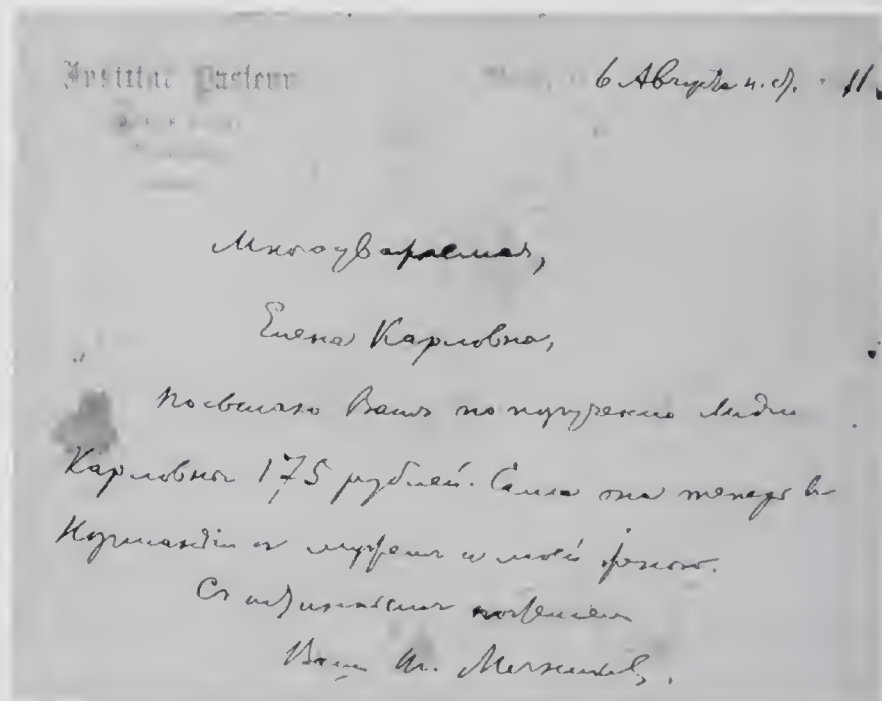 Institut Pasteur
6 Августа н. с. 11.
Многоуважаемая,
Елена Карловна,
Посылаю Вамъ по порученію Лидіи
Карловны 175 рублей. Сама она теперь въ
Нормандіи съ мужемъ и моей женою.
Съ искреннимъ почтеніемъ
Вашъ Ил. Мечниковъ.